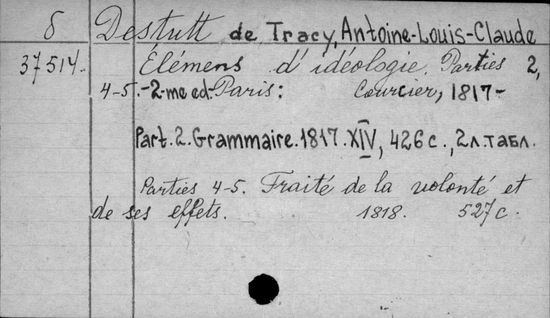 δ Destutt de Tracy, Antoine-Louis-Claude
37514. Élémens d'idéologie. Parties 2,
4-5.-2-me ed. Paris: Courcier, 1817-
Part. 2. Grammaire. 1817. XIV, 426 с., 2 л. табл.
Parties 4-5. Traité de la volonté et
de ses effets. 1818. 527 с.